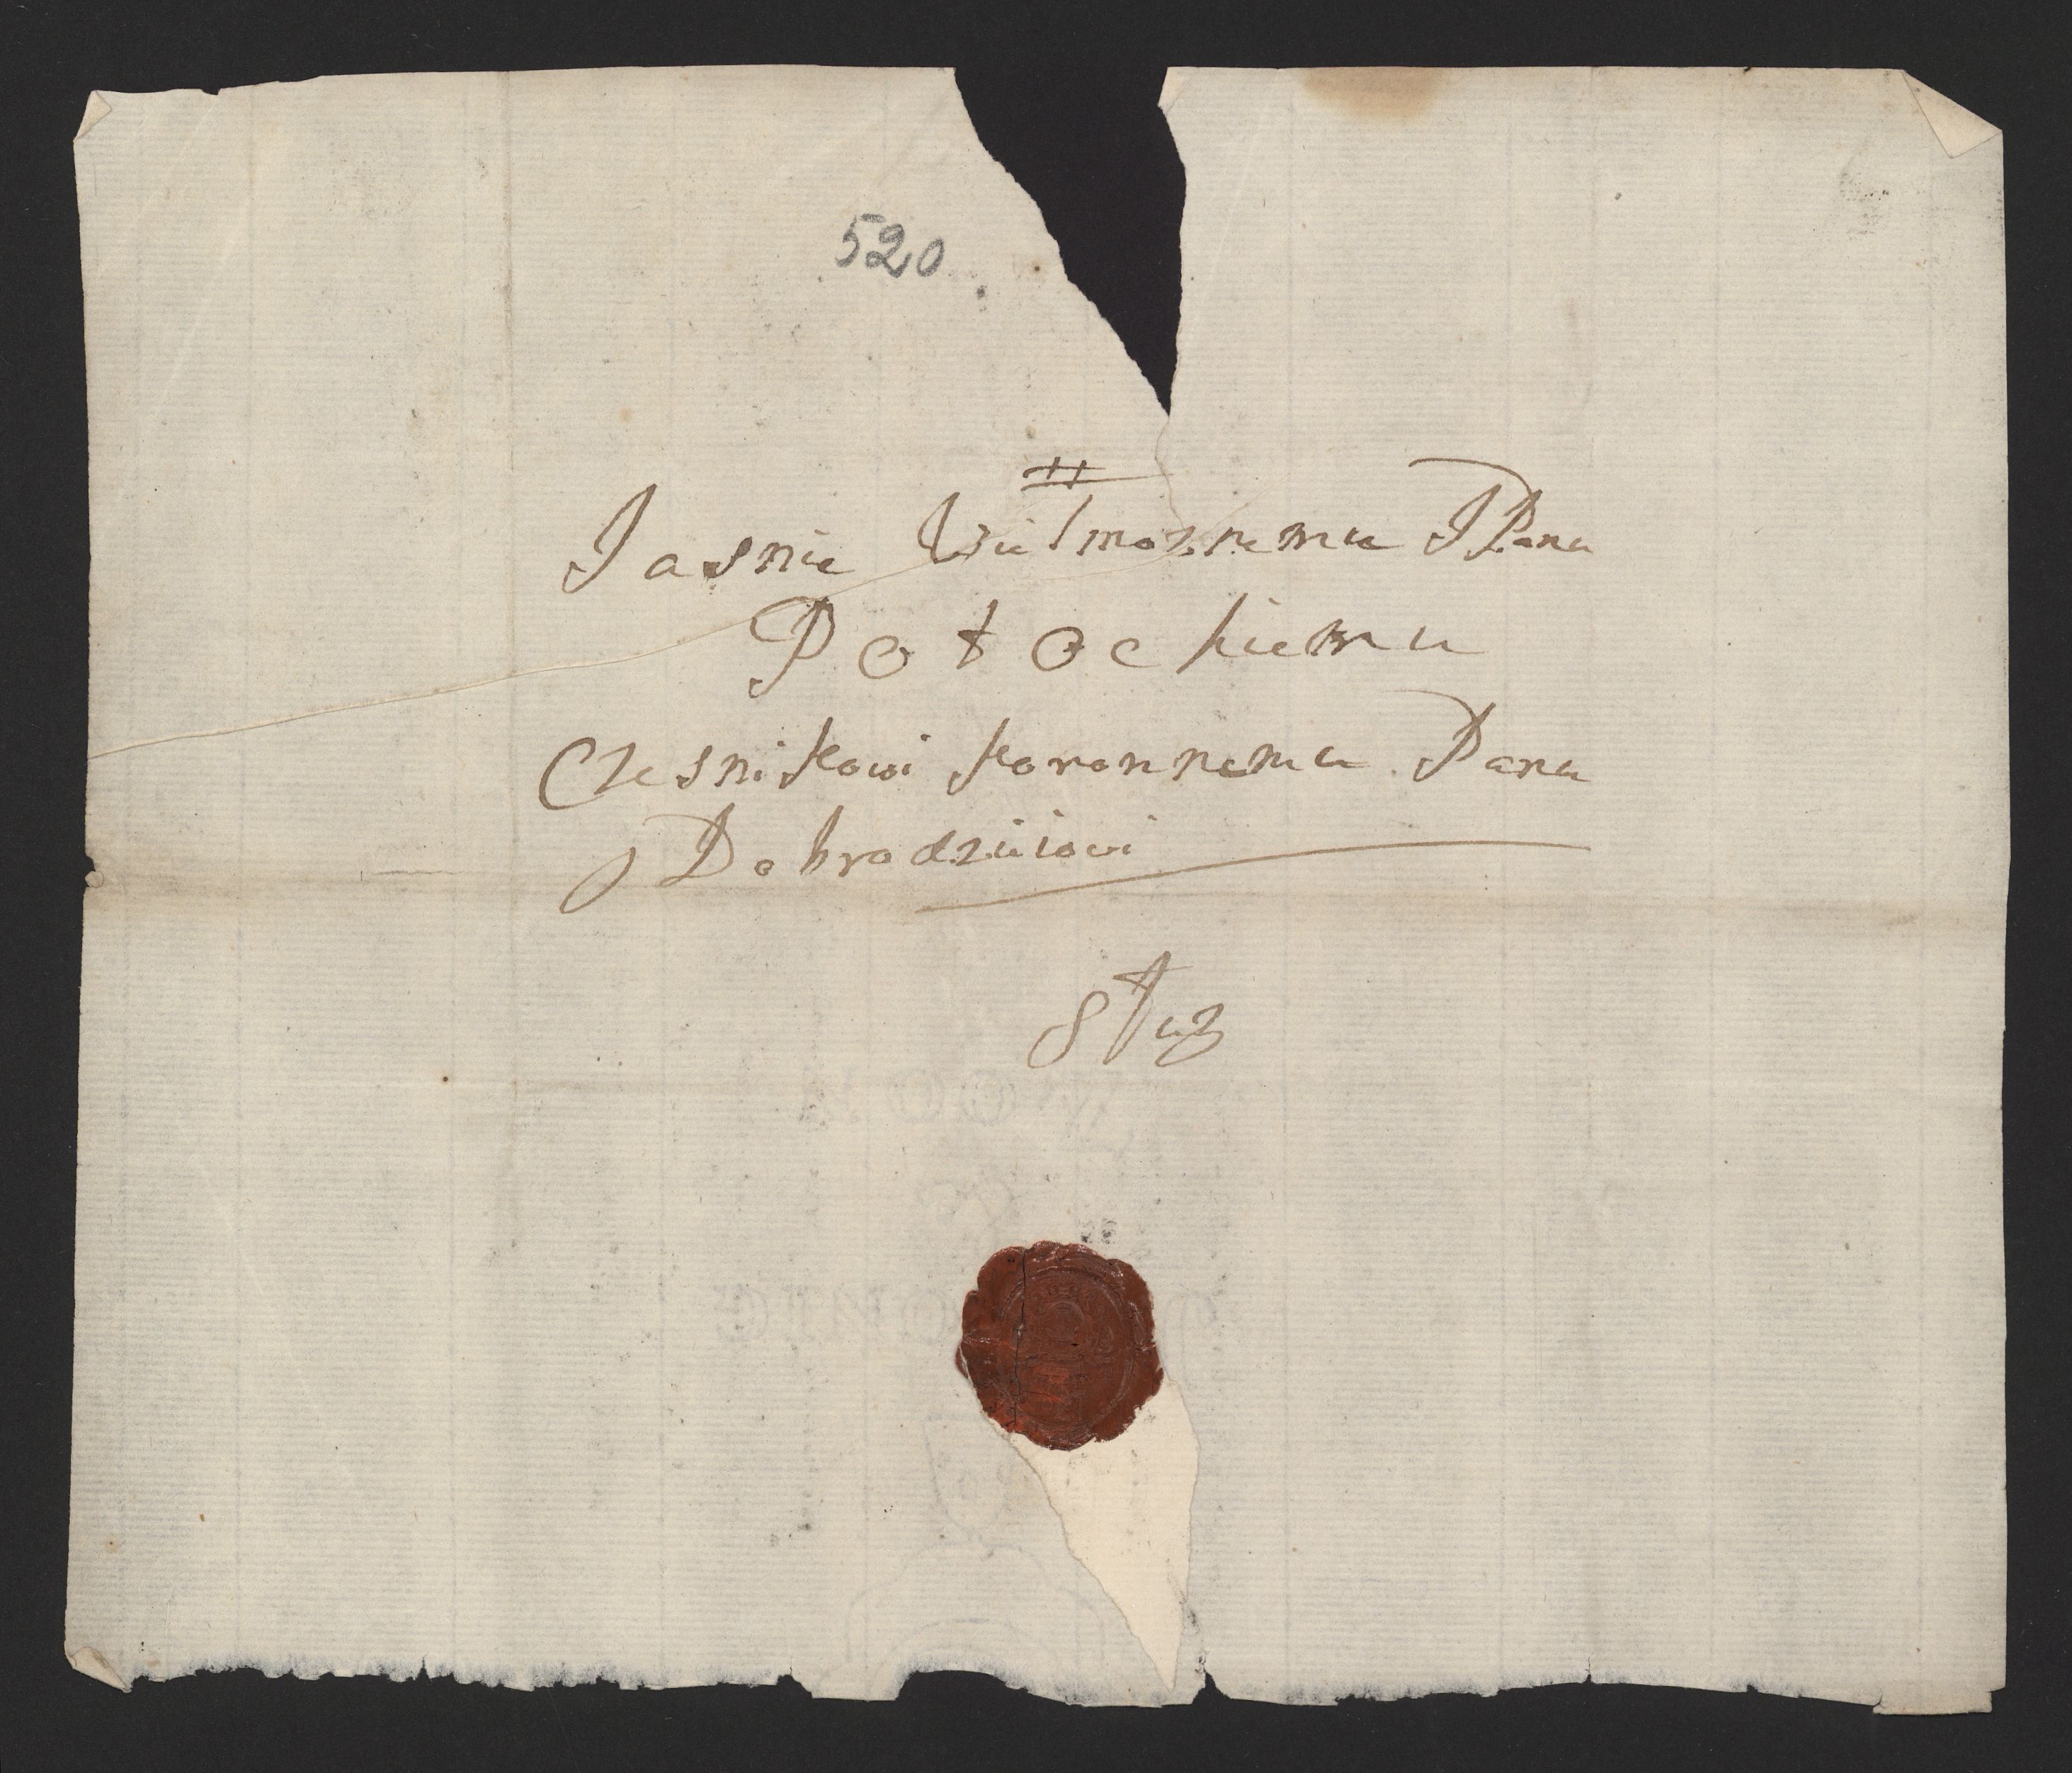 520
Jasnie Wielmoznemu JPanu
Potockiemu
Czesnikowi koronnemu Panu
Dobrodzieiowi